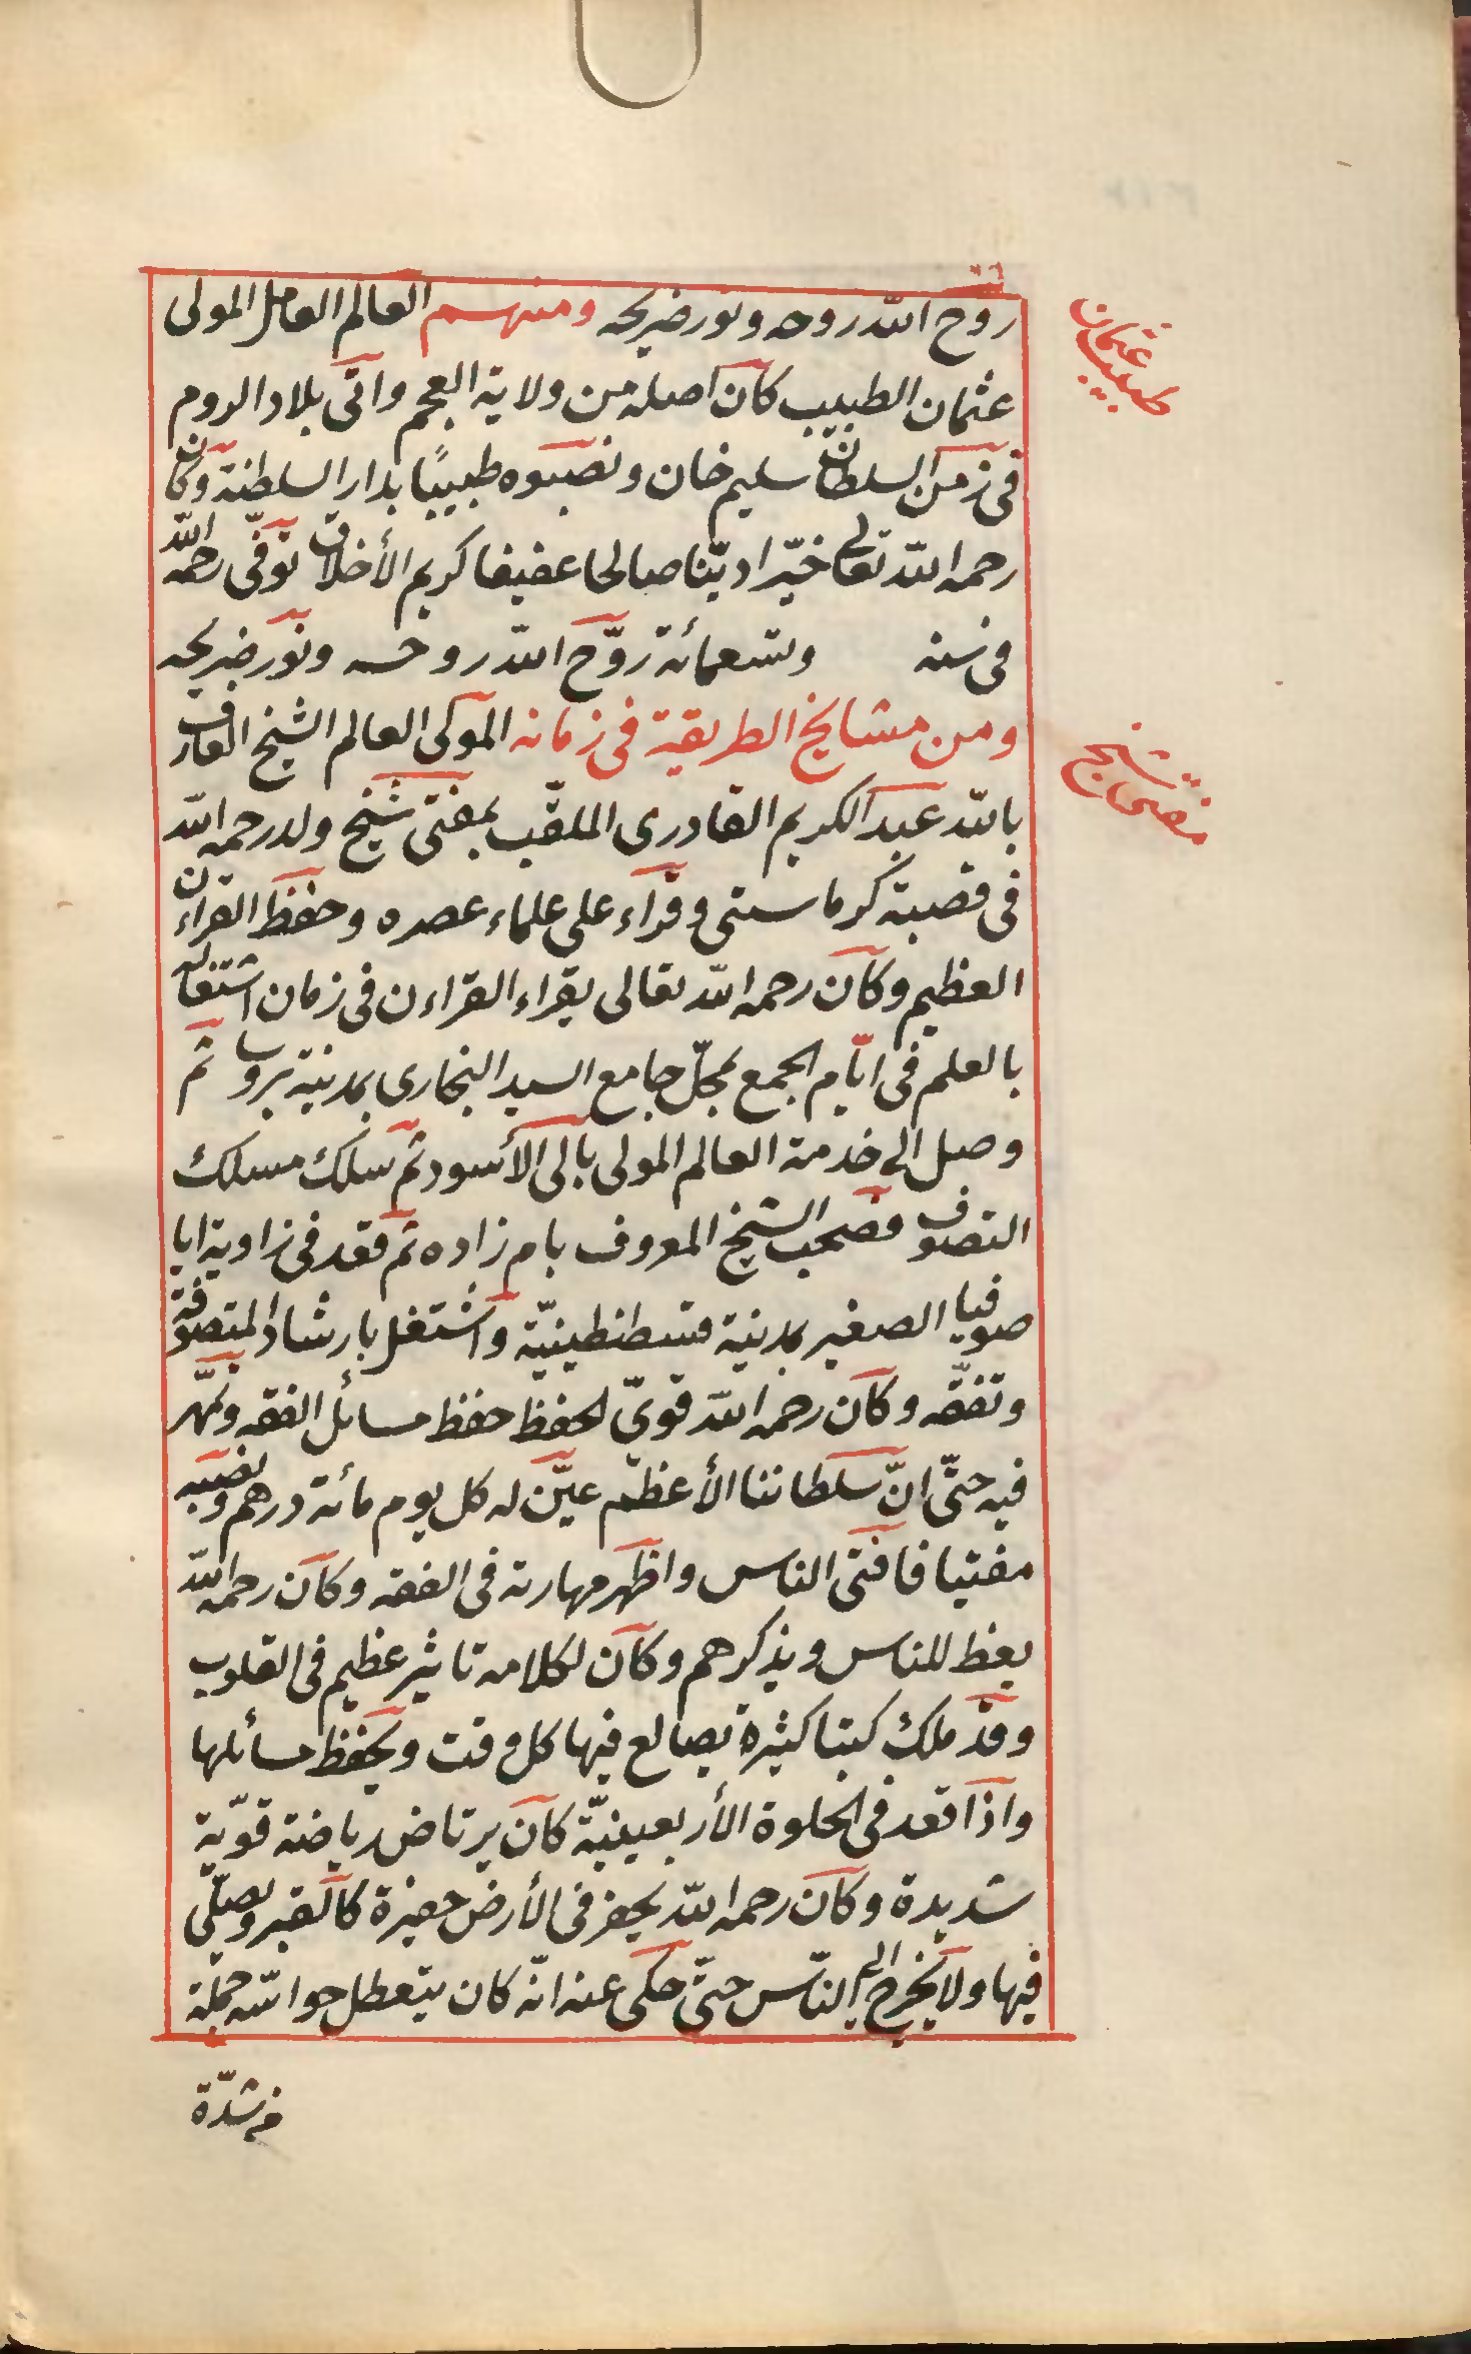 روح الله روحه ونور ضريحه ومنهم العالم العامل المولى
طبيب عثمان
عثمان الطبيب كان اصله من ولاية العجم واتى بلاد الروم
فى زمن السلطان سليم خان ونصبوه طبيبًا بدار السلطنة وكان
رحمه الله تعالى خيّرا ديّنا صالحا عفيفا كريم الأخلاق توفّى رحمه الله
فى سنه وتسعمائة روّح الله روحه ونوّر ضريحه
ومن مشايخ الطريقية فى زمانه المولى العالم الشيخ العارف
مفتى شيخ
بالله عبد الكريم القادرى الملقّب بمفتى شيخ ولد رحمه الله
فى قصبة كرماستى وقراء على علماء عصره وحفظ القراءن
العظيم وكان رحمه الله تعالى يقراء القراءن فى زمان اشتغاله
بالعلم فى ايّام الجمع بمحلّ جامع السيد البخارى بمدينة بروسا ثم
وصل الى خدمة العالم المولى بالى الأسود ثم سلك مسلك
التصوف فصحب الشيخ المعروف بامام زاده ثم قعد فى زاوية ايا
صوفيا الصغير بمدينة قسطنطينيّة واشتغل بارشاد المتصوفة
وتفقّه وكان رحمه الله قوىّ لحفظ حفظ مسائل الفقه وتمهّر
فيه حتّى انّ سلطاننا الأعظم عيّن له كل يوم مائة درهم ونصبه
مفتيا فافتى الناس واظهر مهارته فى الفقه وكان رحمه الله
يعظ للناس ويذكرهم وكان لكلامه تاثير عظيم فى القلوب
وقد ملك كتبا كثيرة يصالع فيها كل وقت ويحفظ مسائلها
واذا قعد فى الخلوة الأربعينيّة كان يرتاض رياضة قويّة
شديدة وكان رحمه الله يحفر فى الأرض حفيرة كالقبر ويصلّى
فيها ولا يخرج الى النّاس حتّى حكى عنه انّه كان يتعطل حواسّه جملة
من شدّة